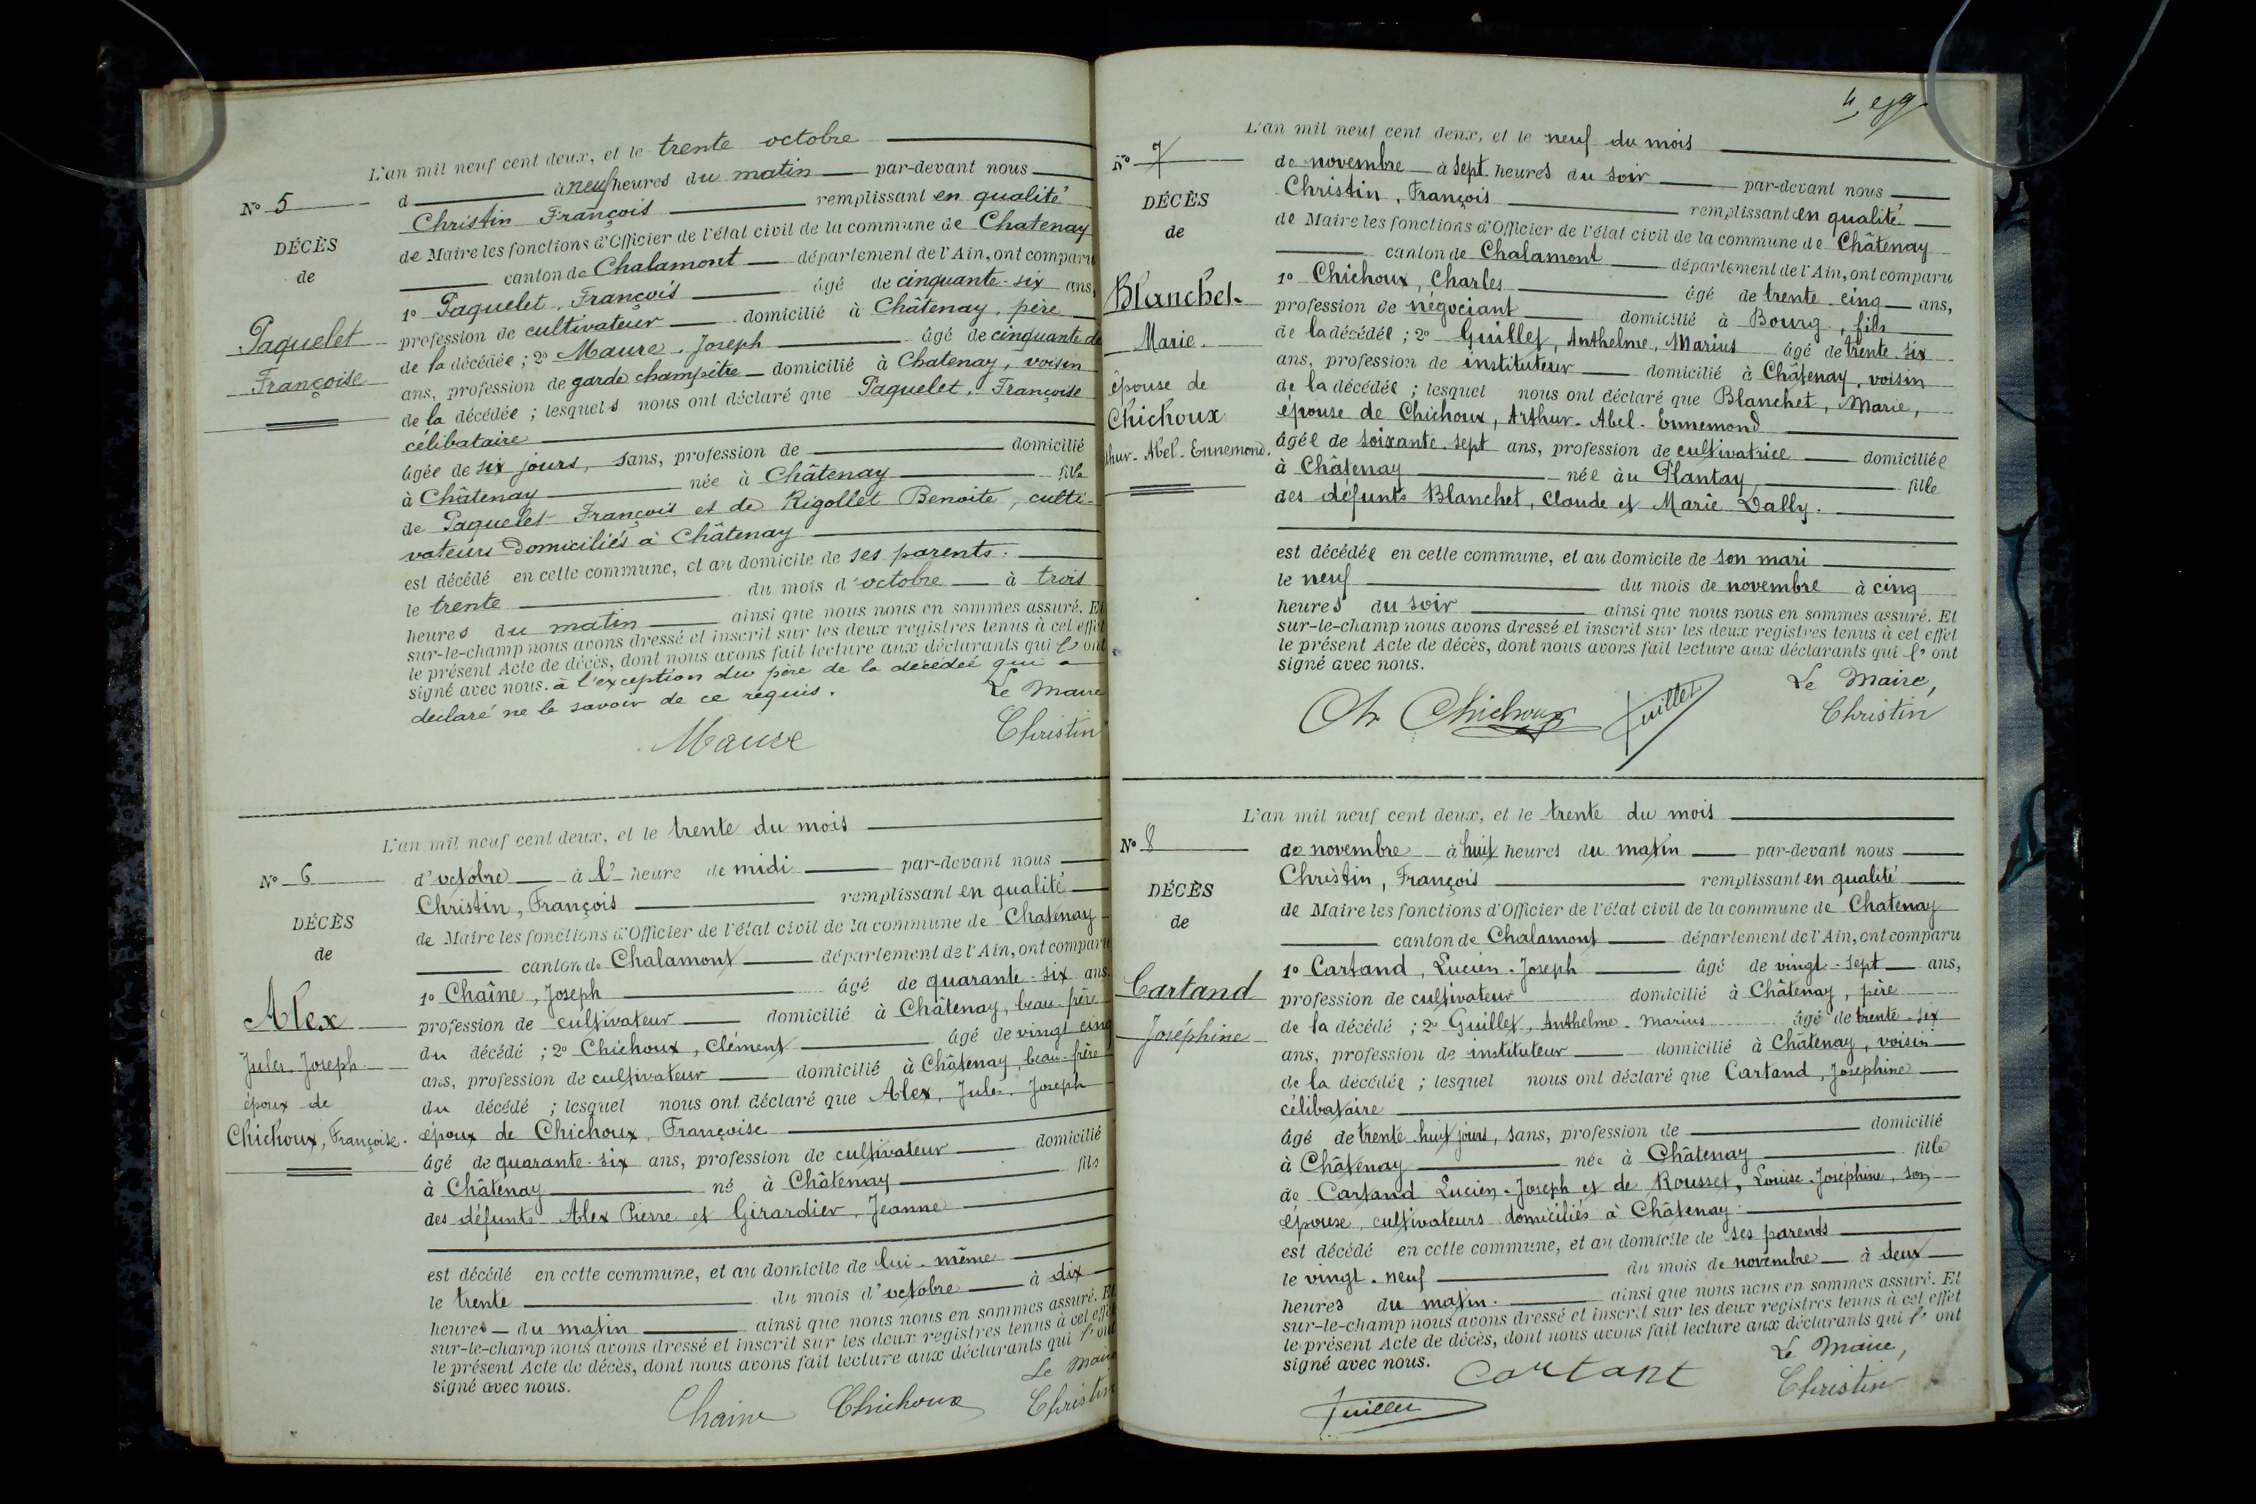 L'an mil neuf cent deux, et le trente octobre
N° 5
d à neuf heures du matin par-devant nous
DÉCÈS
Christin François remplissant en qualité
de
de Maire les fonctions d'Officier de l'état civil de la commune de Chatenay
canton de Chalamont département de l'Ain, ont comparu
1° Paquelet, François âgé de cinquante-six ans,
Paquelet
profession de cultivateur domicilié à Châtenay, père
Françoise
de la décédée ; 2° Maure, Joseph âgé de cinquante de
ans, profession de garde champêtre domicilié à Chatenay, voisin
de la décédée ; lesquels nous ont déclaré que Paquelet, Françoise
célibataire
âgée de six jours, sans, profession de domicilié
à Châtenay née à Châtenay fille
de Paquelet François et de Rigollet Benoite, culti-
vateurs domiciliés à Châtenay
est décédé en cette commune, et au domicile de ses parents.
le trente du mois d'octobre à trois
heures du matin ainsi que nous nous en sommes assuré. Et
sur-le-champ nous avons dressé et inscrit sur les deux registres tenus à cet effet
le présent Acte de décès, dont nous avons fait lecture aux déclarants qui l' ont
signé avec nous. à l'exception du père de la décédée qui a
declaré ne le savoir de ce requis.
Le Maire
Maure
Christin
L'an mil neuf cent deux, et le trente du mois
N° 6
d'octobre à l' heure de midi par-devant nous
DÉCÈS
Christin, François remplissant en qualité
de
de Maire les fonctions d'Officier de l'état civil de la commune de Chatenay
canton de Chalamont département de l'Ain, ont comparu
1° Chaîne, Joseph âgé de quarante-six ans
Alex
profession de cultivateur domicilié à Châtenay, beau-frère
Jules-Joseph
du décédé ; 2° Chichoux, Clément âgé de vingt cinq
époux de
ans, profession de cultivateur domicilié à Châtenay, beau-frère
Chichoux, Françoise.
du décédé ; lesquel nous ont déclaré que Alex, Jules-Joseph
époux de Chichoux, Françoise
âgé de quarante-six ans, profession de cultivateur domicilié
à Châtenay né à Châtenay fils
des défunts Alex Pierre et Girardier, Jeanne
est décédé en cette commune, et au domicile de lui-même
le trente du mois d'octobre à dix
heures du matin ainsi que nous nous en sommes assuré. Et
sur-le-champ nous avons dressé et inscrit sur les deux registres tenus à cet effet
le présent Acte de décès, dont nous avons fait lecture aux déclarants qui l' ont
signé avec nous.
Le Maire
Chaine Chichoux Christin
L'an mil neuf cent deux, et le neuf du mois
N° 7
de novembre à sept heures du soir par-devant nous
DÉCÈS
Christin, François remplissant en qualité
de
de Maire les fonctions d'Officier de l'état civil de la commune de Châtenay
canton de Chalamont département de l'Ain, ont comparu
Blanchet
1° Chichoux, Charles âgé de trente-cinq ans,
Marie.
profession de négociant domicilié à Bourg, fils
épouse de
de la décédée ; 2° Guillet, Anthelme, Marius âgé de trente-six
Chichoux
ans, profession de instituteur domicilié à Châtenay, voisin
thur-Abel-Ennemond.
de la décédée ; lesquel nous ont déclaré que Blanchet, Marie,
épouse de Chichoux, Arthur-Abel-Ennemond
âgée de soixante-sept ans, profession de cultivatrice domiciliée
à Châtenay née au Plantay fille
des défunts Blanchet, Claude et Marie Dally.
est décédée en cette commune, et au domicile de son mari
le neuf du mois de novembre à cinq
heures du soir ainsi que nous nous en sommes assuré. Et
sur-le-champ nous avons dressé et inscrit sur les deux registres tenus à cet effet
le présent Acte de décès, dont nous avons fait lecture aux déclarants qui l' ont
signé avec nous.
Le Maire,
Ch Chichoux Guillet Christin
L'an mil neuf cent deux, et le trente du mois
N° 8
de novembre à huit heures du matin par-devant nous
DÉCÈS
Christin, François remplissant en qualité
de
de Maire les fonctions d'Officier de l'état civil de la commune de Chatenay
canton de Chalamont département de l'Ain, ont comparu
Cartand
1° Cartand, Lucien-Joseph âgé de vingt-sept ans,
Joséphine
profession de cultivateur domicilié à Châtenay, père
de la décédé ; 2° Guillet, Anthelme-Marius âgé de trente-six
ans, profession de instituteur domicilié à Châtenay, voisin
de la décédée ; lesquel nous ont déclaré que Cartand, Joséphine
célibataire
âgé de trente-huit jours, sans, profession de domicilié
à Châtenay née à Châtenay fille
de Cartand Lucien-Joseph et de Rousset, Louise-Joséphine, son
épouse, cultivateurs domiciliés à Châtenay.
est décédé en cette commune, et au domicile de ses parents
le vingt-neuf du mois de novembre à deux
heures du matin. ainsi que nous nous en sommes assuré. Et
sur-le-champ nous avons dressé et inscrit sur les deux registres tenus à cet effet
le présent Acte de décès, dont nous avons fait lecture aux déclarants qui l' ont
signé avec nous.
Le Maire,
Cartant Christin
Guillet